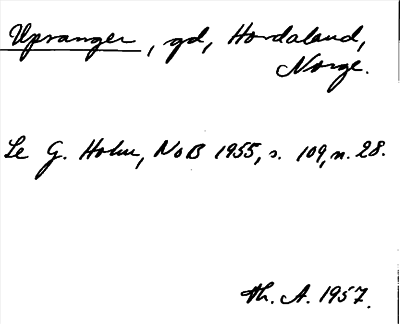 Upsanger, gd, Hordaland,
Norge.
Se G. Holm, NoB 1955, s. 109, n. 28.
Th. A. 1957.